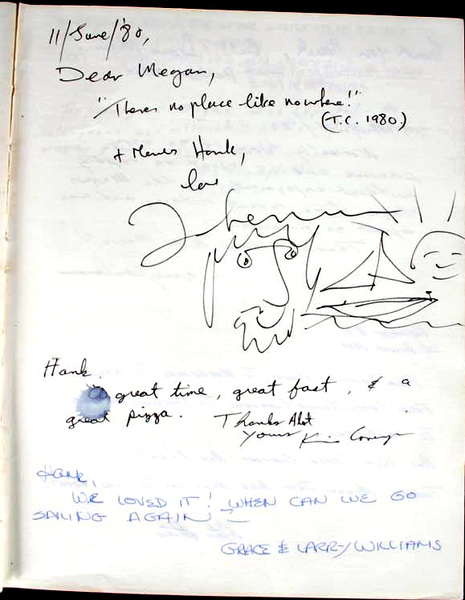 11/June/'80,
Dear Megan,
"There's no place like nowhere!"
(T.C. 1980)
+ Hank,
love
Hank
great time, great fast, & a
great pizza. Thanks Alot
Yours
Hank,
WE LOVED IT! WHEN CAN WE GO
SAILING AGAIN
GRACE & LARRY WILLIAMS